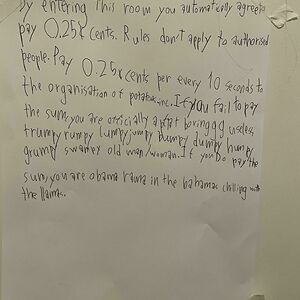 By entering This room you automatically agree to
pay 0.25¢ cents. Rules don't apply to authorised
people. Pay 0.25¢ cents per every 10 seconds to
the organisation of potatus inc. If you fail to pay
the sum, you are officially a fat boringgg useless
trumpy rumpy lumpy jumpy bumpy dumpy humpy
grumpy old man/woman. If you Do pay the
sum, you are obama rama in the bahamas chilling with
the llamas.